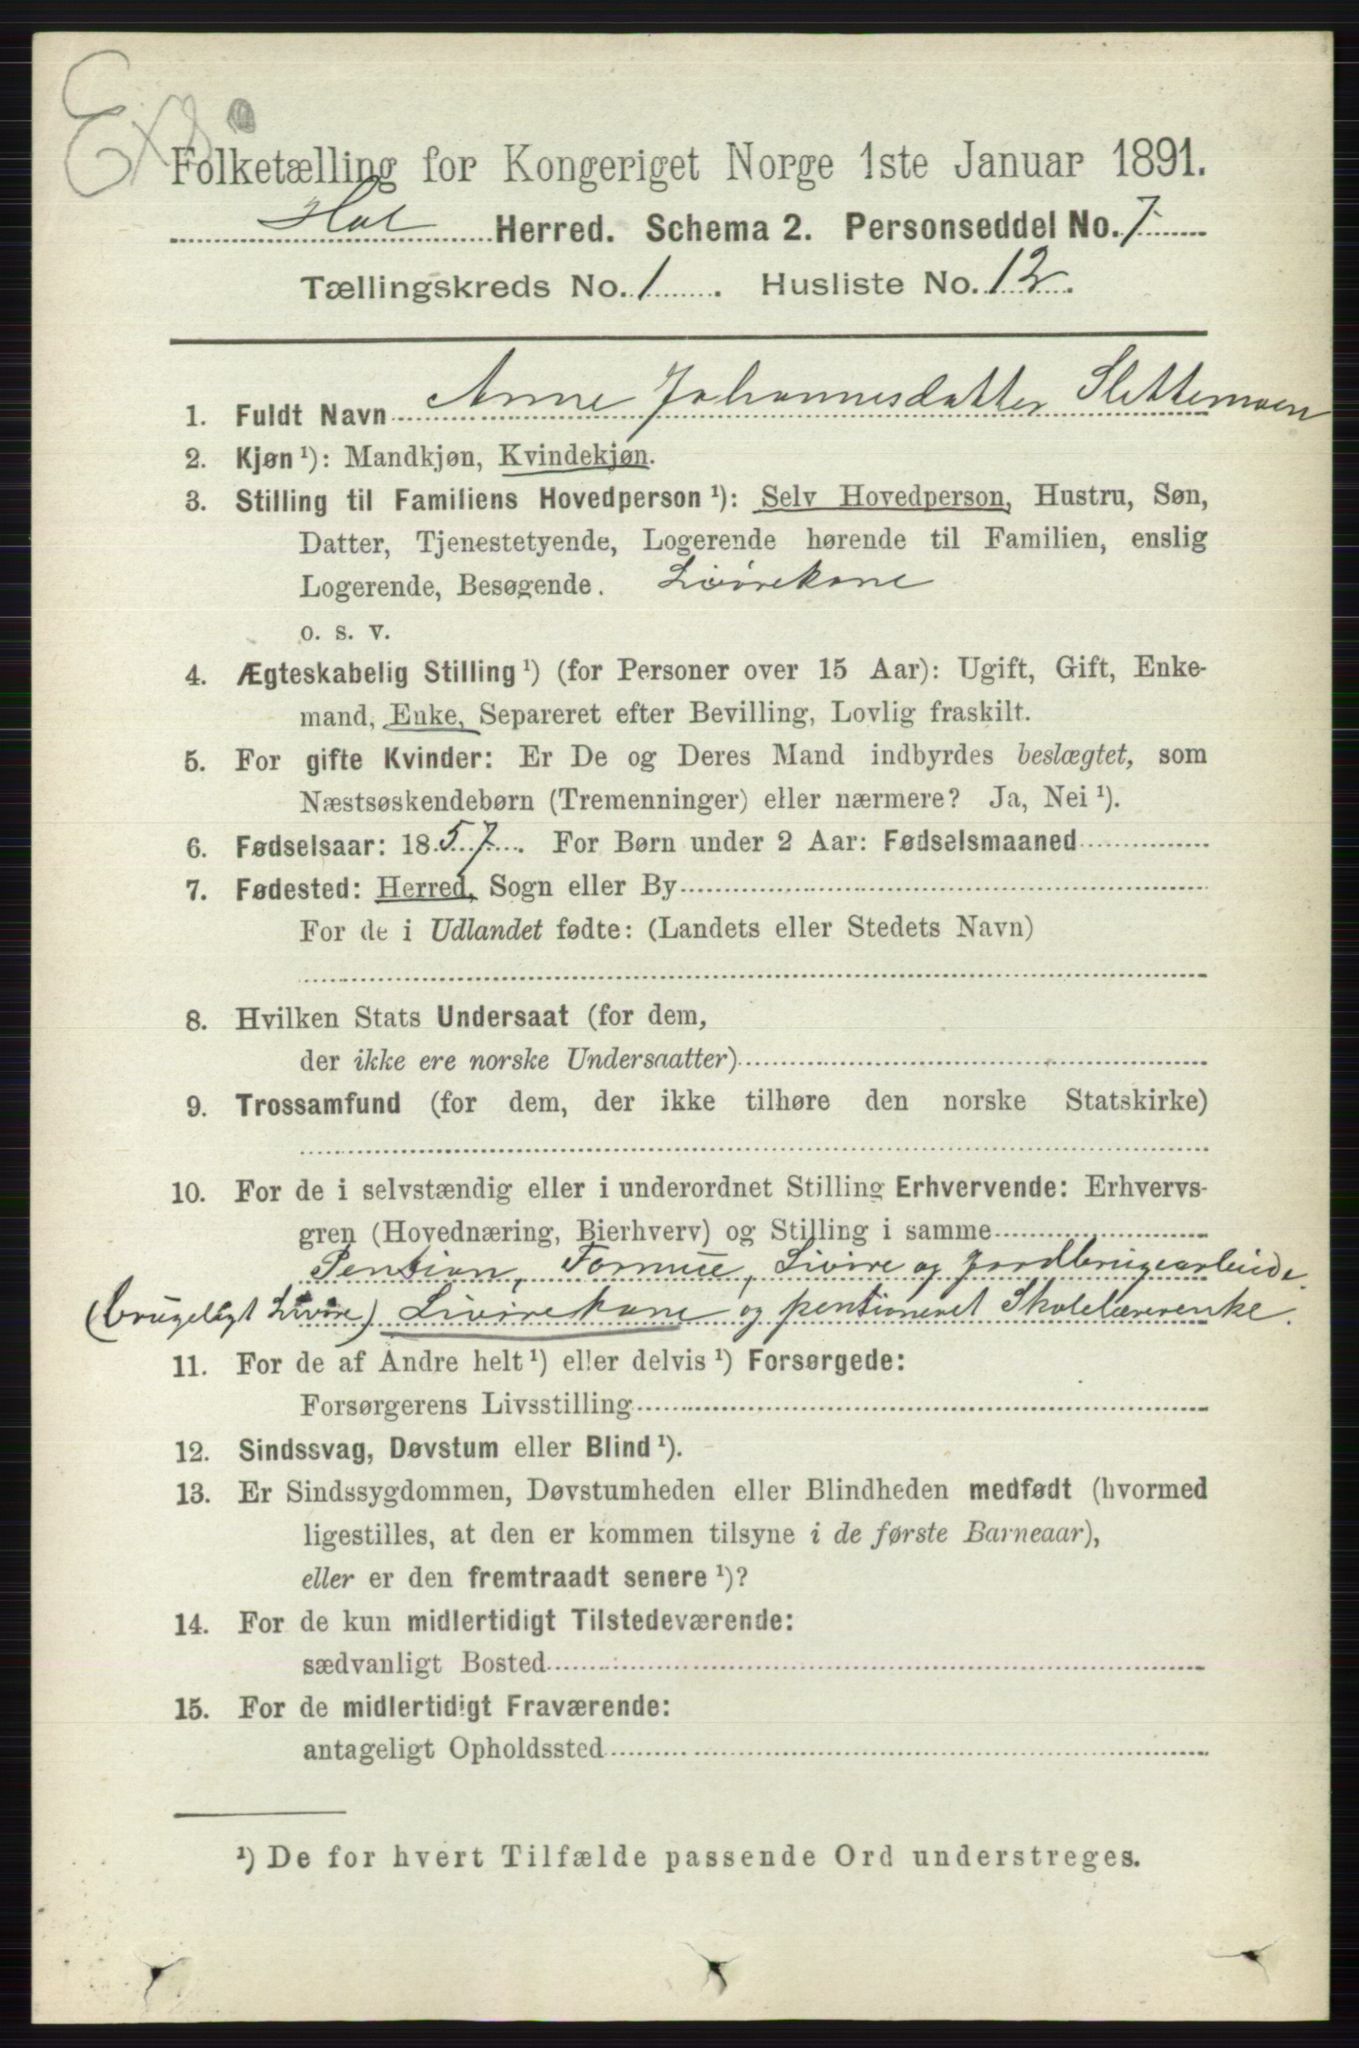 Exp.
Folketælling for Kongeriget Norge 1ste Januar 1891.
Hol Herred. Schema 2. Personseddel No. 7
Tællingskreds No. 1. Husliste No. 12.
1. Fuldt Navn Anne Johannesdatter Slettemoen
2. Kjøn ¹): Mandkjøn, Kvindekjøn.
3. Stilling til Familiens Hovedperson ¹): Selv Hovedperson, Hustru, Søn,
Datter, Tjenestetyende, Logerende hørende til Familien, enslig
Logerende, Besøgende. Livørekone
o. s. v.
4. Ægteskabelig Stilling ¹) (for Personer over 15 Aar): Ugift, Gift, Enke-
mand, Enke, Separeret efter Bevilling, Lovlig fraskilt.
5. For gifte Kvinder: Er De og Deres Mand indbyrdes beslægtet, som
Næstsøskendebørn (Tremenninger) eller nærmere? Ja, Nei ¹).
6. Fødselsaar: 1857. For Børn under 2 Aar: Fødselsmaaned
7. Fødested: Herred, Sogn eller By
For de i Udlandet fødte: (Landets eller Stedets Navn)
8. Hvilken Stats Undersaat (for dem,
der ikke ere norske Undersaatter)
9. Trossamfund (for dem, der ikke tilhøre den norske Statskirke)
10. For de i selvstændig eller i underordnet Stilling Erhvervende: Erhvervs-
gren (Hovednæring, Bierhverv) og Stilling i samme
Pension, Formue, Livøre og Jordbrugearbeide.
(brugeligt Livøre) Livørekone og pensioneret Skolelærerenke.
11. For de af Andre helt ¹) eller delvis ¹) Forsørgede:
Forsørgerens Livsstilling
12. Sindssvag, Døvstum eller Blind ¹).
13. Er Sindssygdommen, Døvstumheden eller Blindheden medfødt (hvormed
ligestilles, at den er kommen tilsyne i de første Barneaar),
eller er den fremtraadt senere ¹)?
14. For de kun midlertidigt Tilstedeværende:
sædvanligt Bosted
15. For de midlertidigt Fraværende:
antageligt Opholdssted
¹) De for hvert Tilfælde passende Ord understreges.